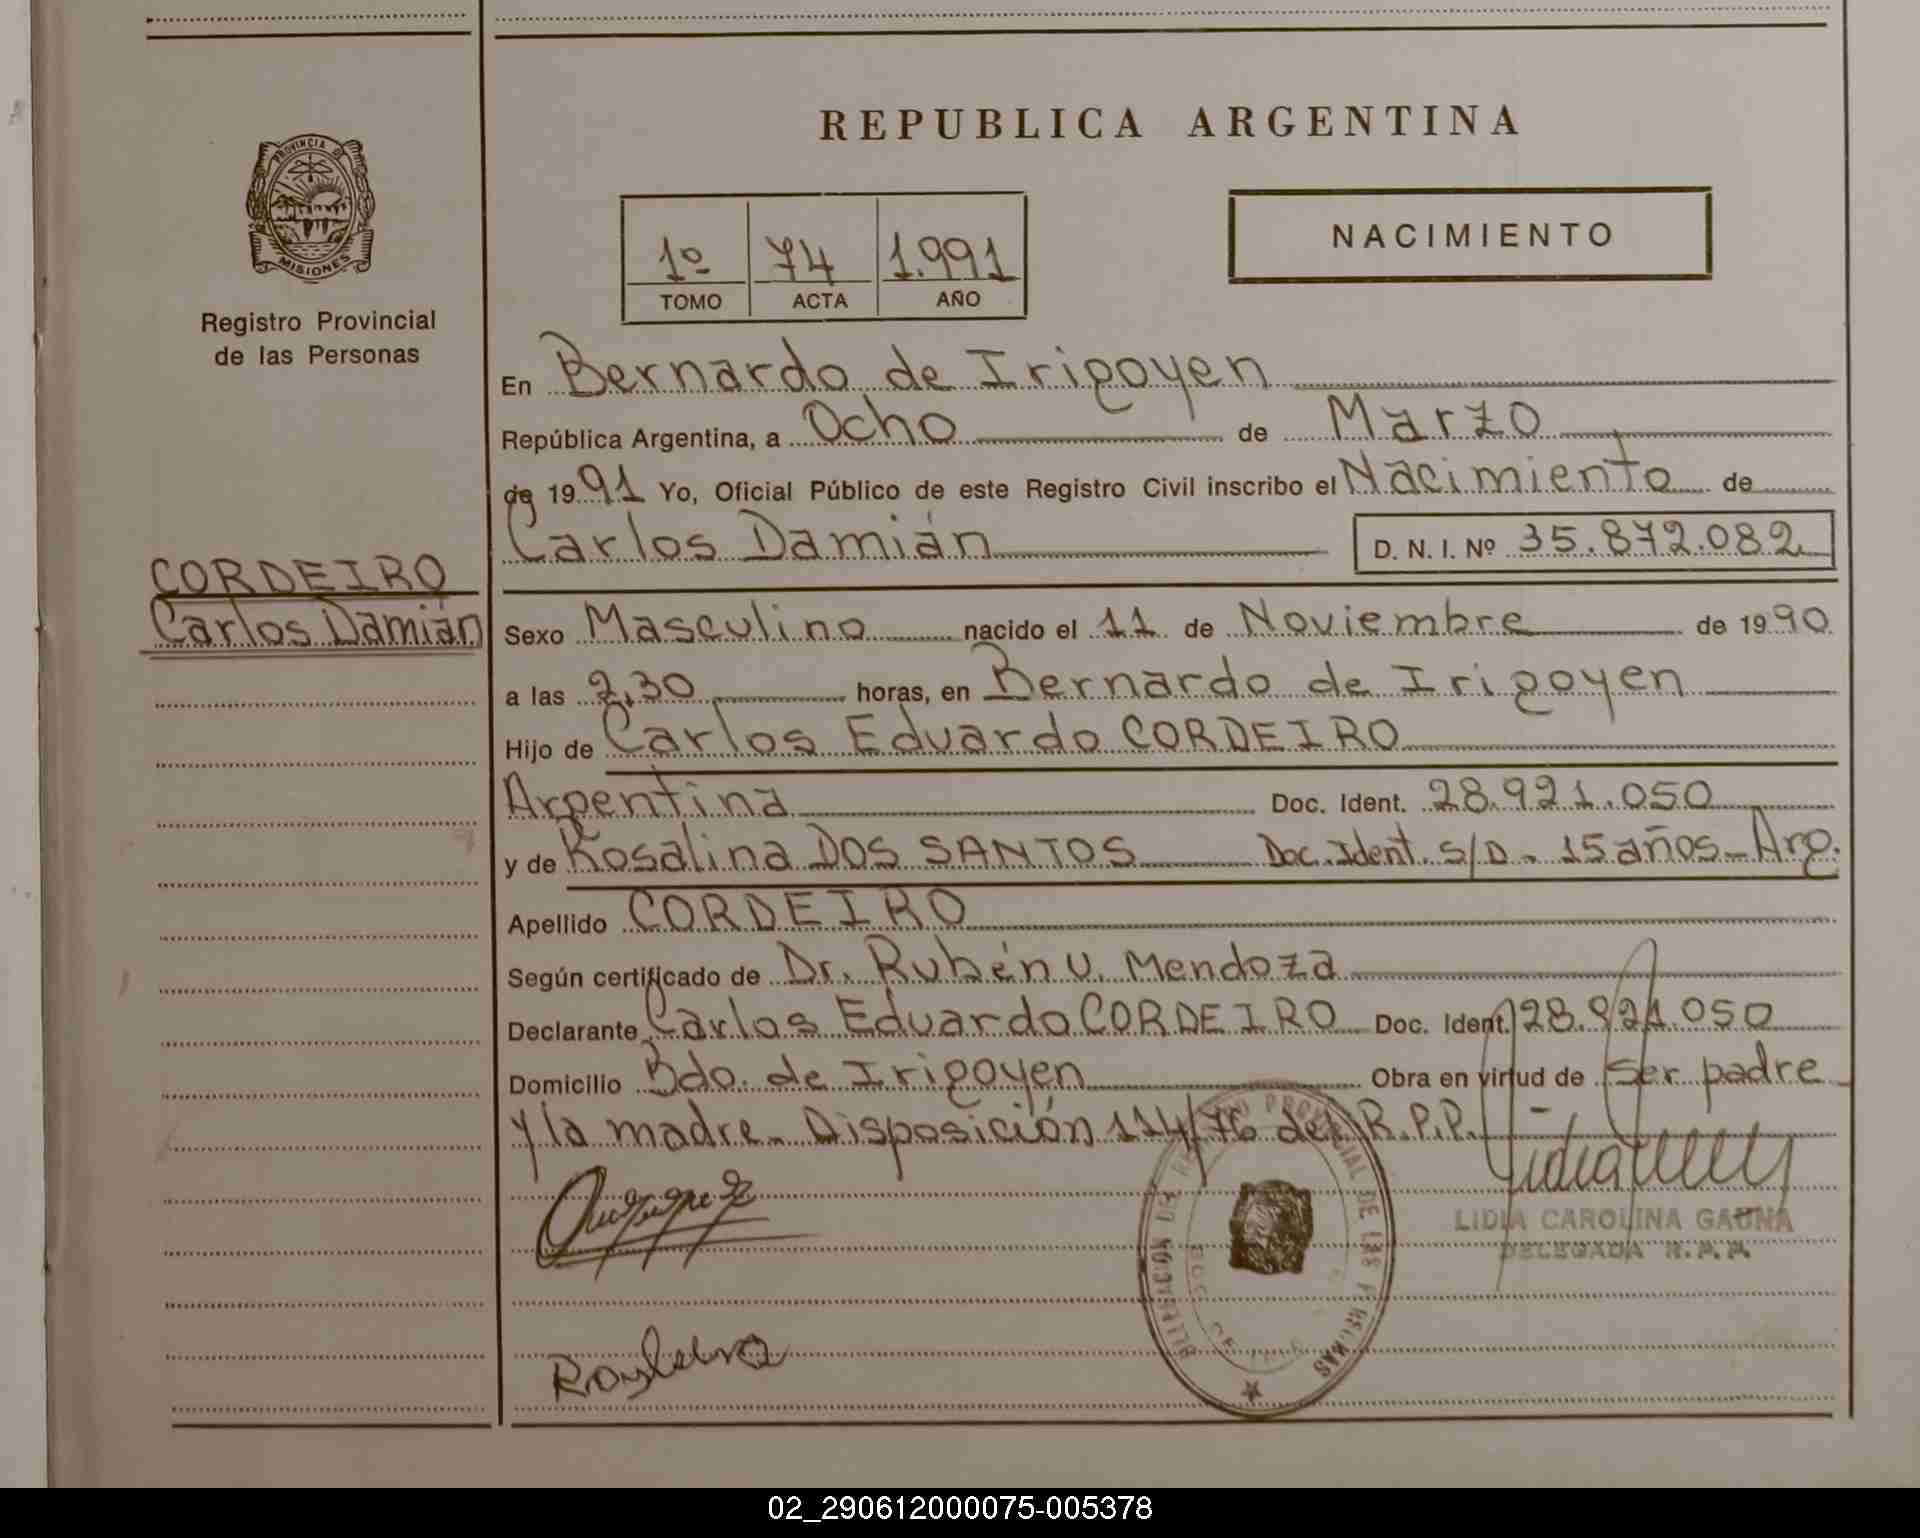 REPUBLICA ARGENTINA
PROVINCIA DE
MISIONES
Registro Provincial
de las Personas
1º 74 1.991
TOMO ACTA AÑO
NACIMIENTO
En Bernardo de Irigoyen
República Argentina, a Ocho de Marzo
de 1991 Yo, Oficial Público de este Registro Civil inscribo el Nacimiento de
Carlos Damián D. N. I. Nº 35.872.082
CORDEIRO
Carlos Damián
Sexo Masculino nacido el 11 de Noviembre de 1990
a las 2,30 horas, en Bernardo de Irigoyen
Hijo de Carlos Eduardo CORDEIRO
Argentina Doc. Ident. 28.921.050
y de Rosalina DOS SANTOS Doc. Ident. S/D - 15 años - Arg.
Apellido CORDEIRO
Según certificado de Dr. Rubén U. Mendoza
Declarante Carlos Eduardo CORDEIRO Doc. Ident. 28.921.050
Domicilio Bdo. de Irigoyen Obra en virtud de Ser padre
y la madre - Disposición 114/76 del R.P.P. -
LIDIA CAROLINA GAUNA
DELEGADA R.P.P.
02_290612000075-005378